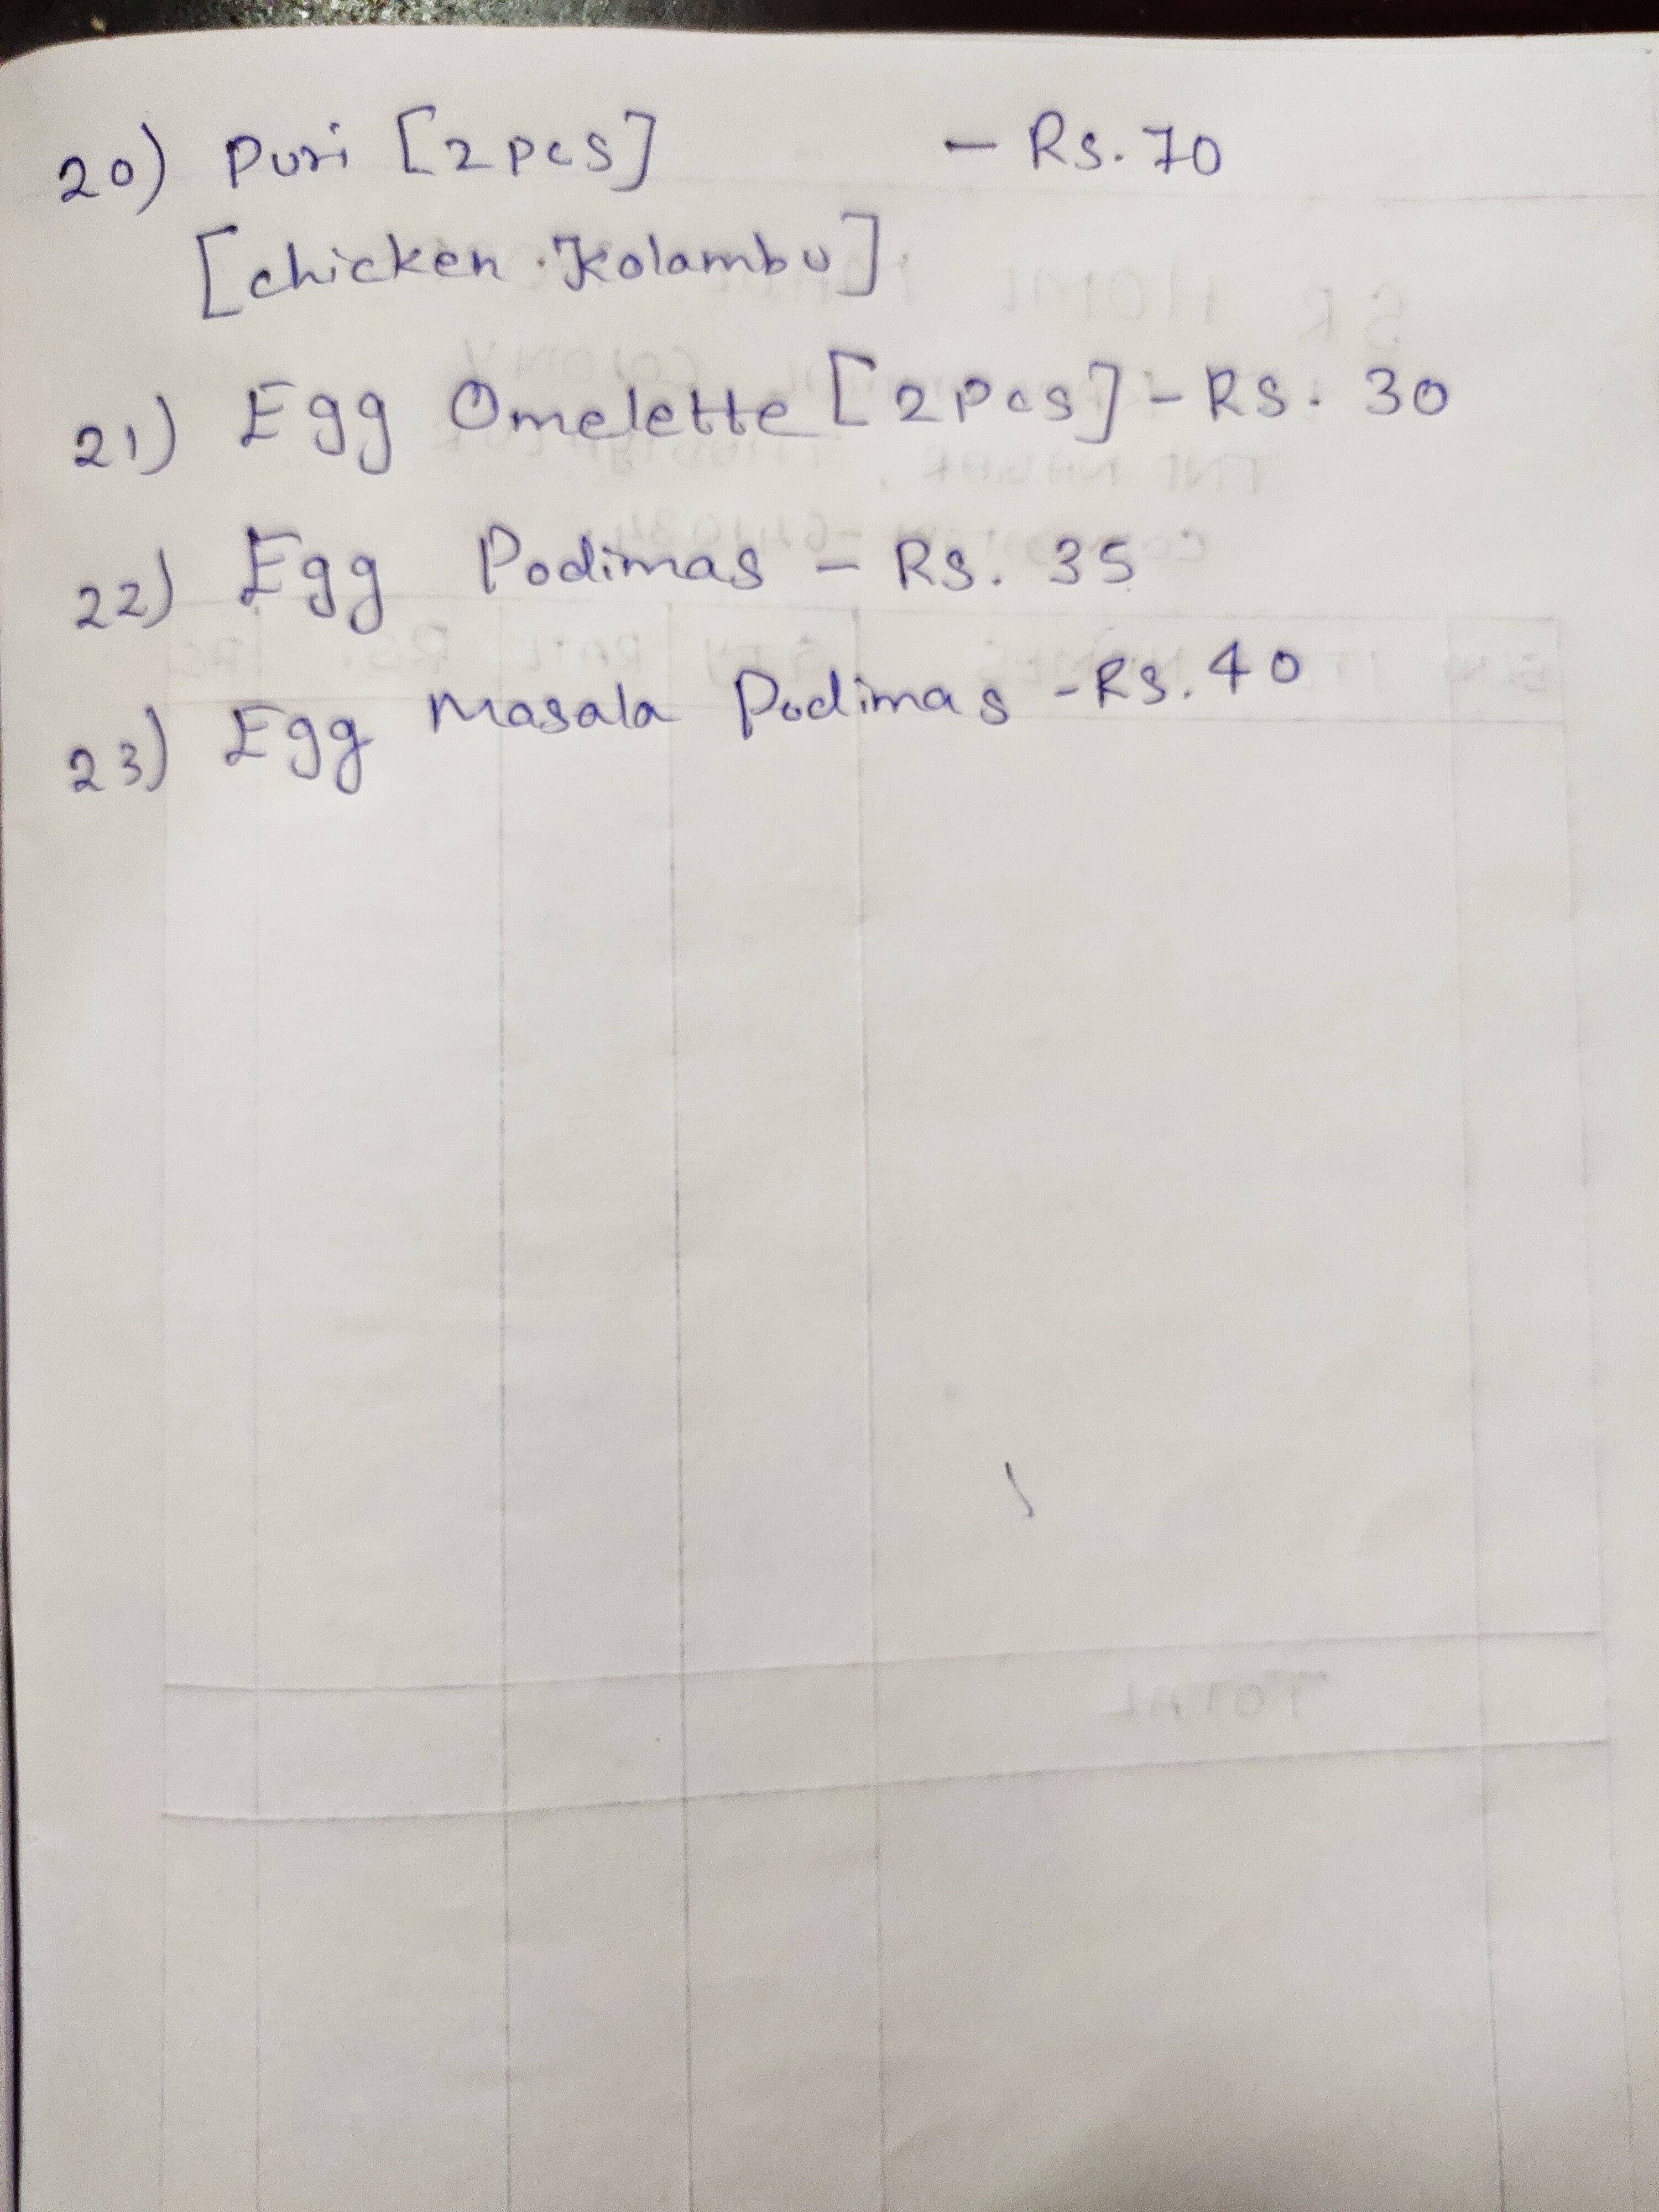 20) Puri [2 Pcs] - Rs. 70
[chicken Kolambu]
21) Egg Omelette [2 Pcs] - Rs. 30
22) Egg Podimas - Rs. 35
23) Egg Masala Podimas - Rs. 40
TOTAL